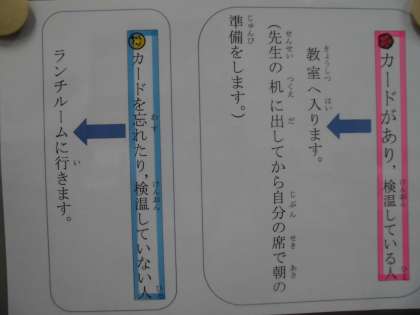 カードがあり，検温している人
教室へ入ります。
（先生の机に出してから自分の席で朝の
準備をします。）
カードを忘れたり，検温していない人
ランチルームに行きます。